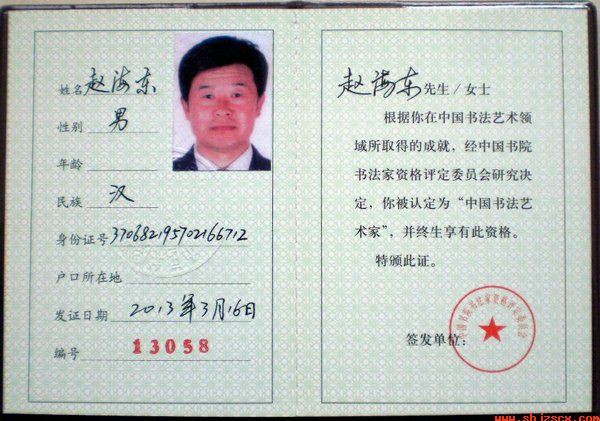 姓名 赵海东
性别 男
年龄
民族 汉
身份证号 370682195702166712
户口所在地
发证日期 2013年3月16日
编号 13058
赵海东先生/女士
根据你在中国书法艺术领
域所取得的成就，经中国书院
书法家资格评定委员会研究决
定，你被认定为“中国书法艺
术家”，并终生享有此资格。
特颁此证。
签发单位：
中国书院书法家资格评定委员会
www.shjzscx.com